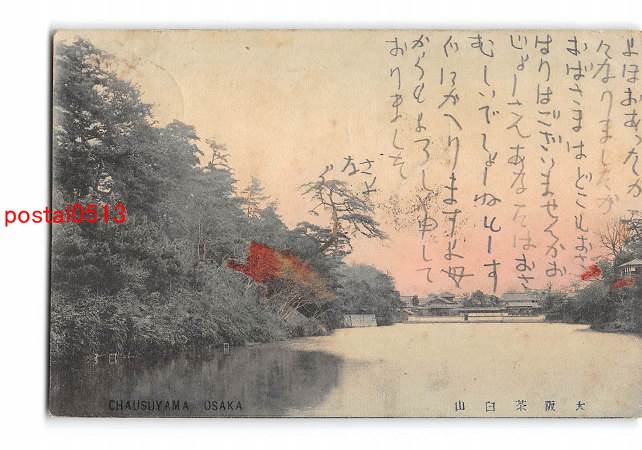 よほおあつたか
になりましたが
おばさまはどこもおさ
はりはございませんかお
じよーさんあなたはおさ
むしいでしよーねもーす
ぐにかへりますよ母
からもよろしく申して
おりました
さよ
なら
postal0513
CHAUSUYAMA OSAKA
大阪茶臼山